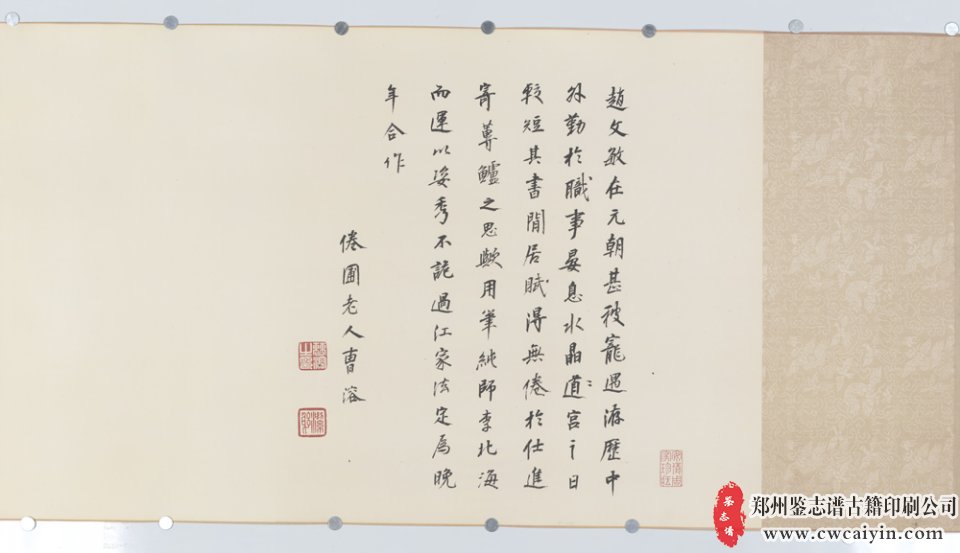 趙文敏在元朝甚被寵遇游歷中
外勤於職事晏息水晶道宮之日
較短其書閒居賦得無倦於仕進
寄蓴鱸之思歟用筆純師李北海
而運以姿秀不詭過江家法定為晚
年合作
倦圃老人曹溶
鉴志谱
郑州鉴志谱古籍印刷公司
www.cwcaiyin.com